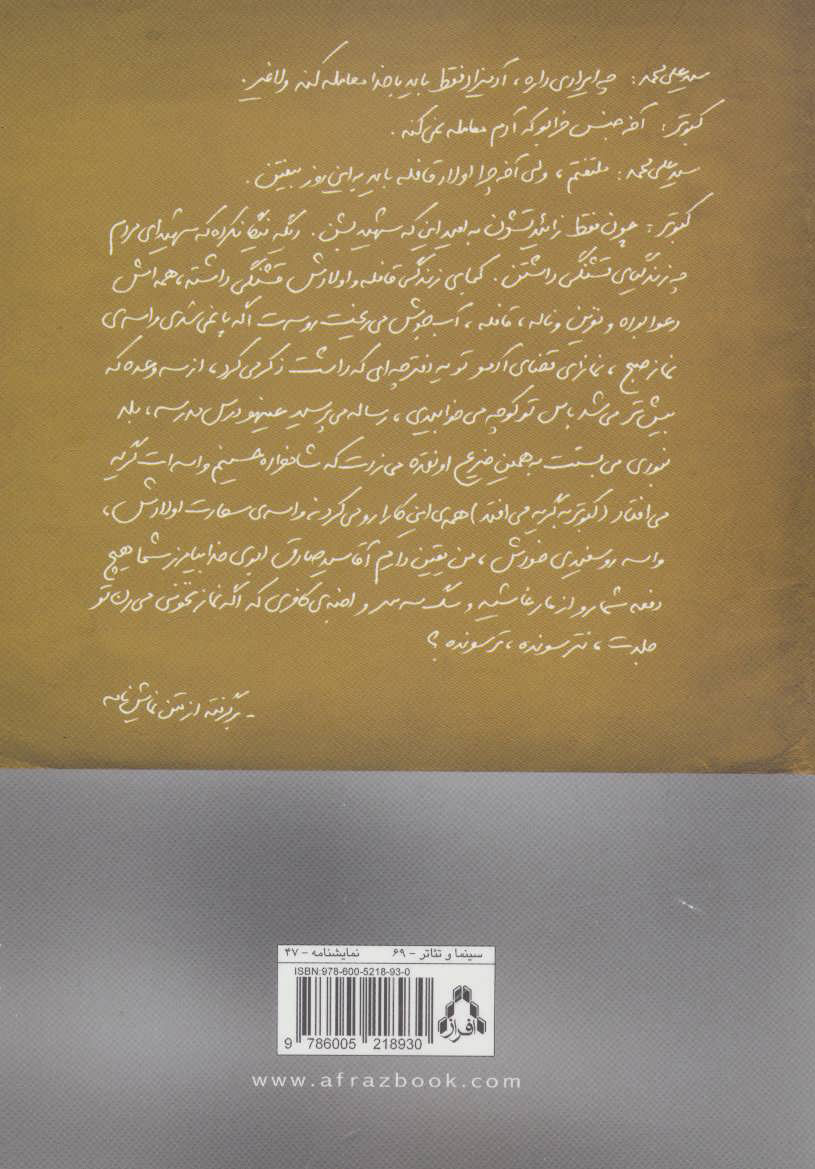 سید علی محمد: چه ایرادی داره، آدمیزاد فقط باید با خدا معامله کنه ولاغیر.
کبوتر: آخه جنس خرابو که آدم معامله نمی‌کنه.
سید علی محمد: ملتفتم، ولی آخه چرا اولاد قافله باید به این روز بیفتن.
کبوتر: چون فقط زائیدیشون به امید این که شهید بشن. دیگه نیگا نکرده که شهیدای مردم
چه زندگیای قشنگی داشتن. کجای زندگی قافله و اولادش قشنگی داشته، همه‌اش
دعوا بوده و نفرین و ناله، قافله، آب جوش می‌ریخت روسرت اگه پا نمی‌شدی واسه‌ی
نماز صبح، نمازای قضای آدمو تو یه دفترچه‌ای که داشت ذکر می‌کرد، از سه وعده که
بیش‌تر می‌شد باس تو کوچه می‌خوابیدی، رساله می‌پرسید عینهو درس مدرسه، بلد
نبودی می‌بستت به همین ضریح اونقده می‌زدت که شاخواره حسینم واسه‌ات گریه
می‌افتاد (کبوتر به گریه می‌افتد) همه‌ی این کارا رو می‌کردند واسه‌ی سعادت اولادش،
واسه روسفیدی خودش، من یقین دارم آقا سید صادق ابوی خدا بیامرز شما هیچ
دفعه شما رو از مار غاشیه و سگ سه سر و اجنه‌ی کافری که اگه نماز نخونی می‌رن تو
جلدت، نترسونده، ترسونده؟
- برگرفته از متن نمایش نامه
سینما و تئاتر - ۶۹ نمایشنامه - ۴۷
ISBN:978-600-5218-93-0
افراز
9 786005 218930
www.afrazbook.com